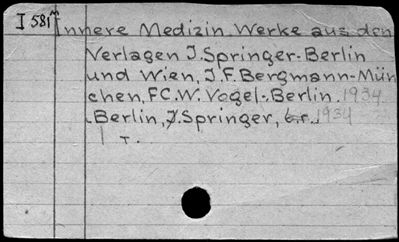 I 581m Innere Medizin Werke aus den
Verlagen J. Springer-Berlin
und Wien, J.F. Bergmann-Mün
chen, F.C.W. Vogel-Berlin. 1934.
Berlin, J. Springer, 1934
1 T.